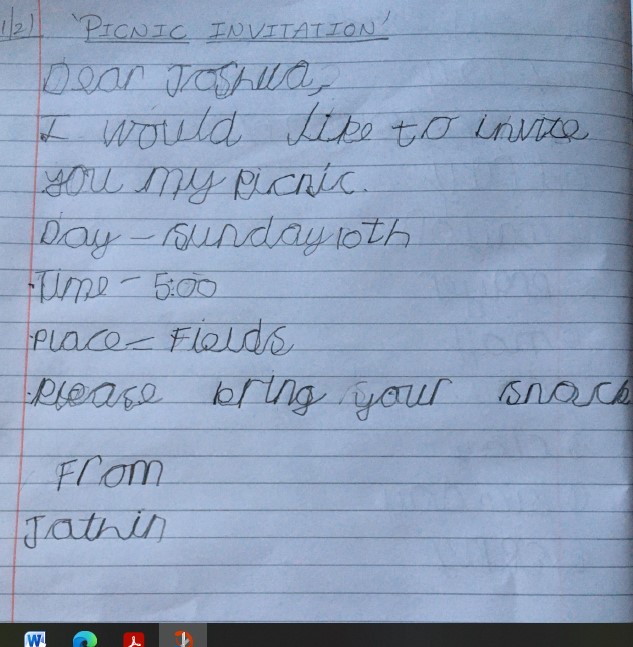 1/2) 'PICNIC INVITATION'
Dear Joshua,
I would like to invite
you my picnic.
Day - Sunday 10th
Time - 5:00
Place - Fields
Please bring your snack
From
Jathin